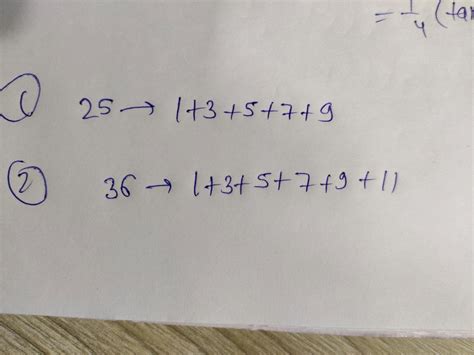 = 1/4 (tan
① 25 → 1+3+5+7+9
② 36 → 1+3+5+7+9+11